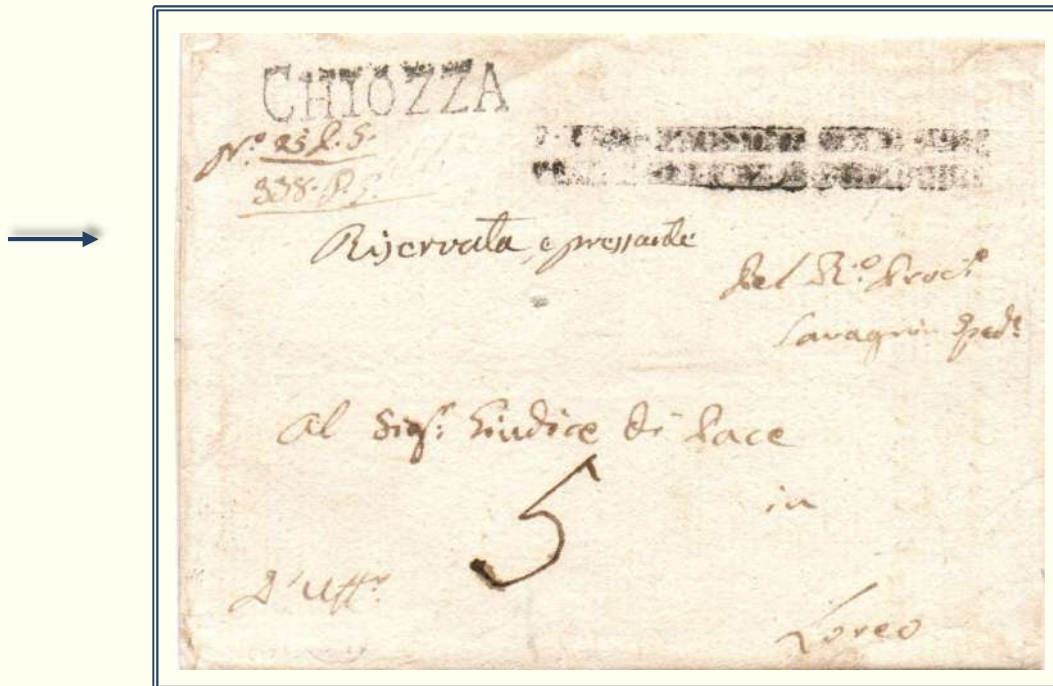 CHIOZZA
N.º 25 P. S.
338. P. S.
Riservata, e pressante
Del R.º Proc.º
Al Sig.r Giudice di Pace
5
in
D'Uff.º
Loreo